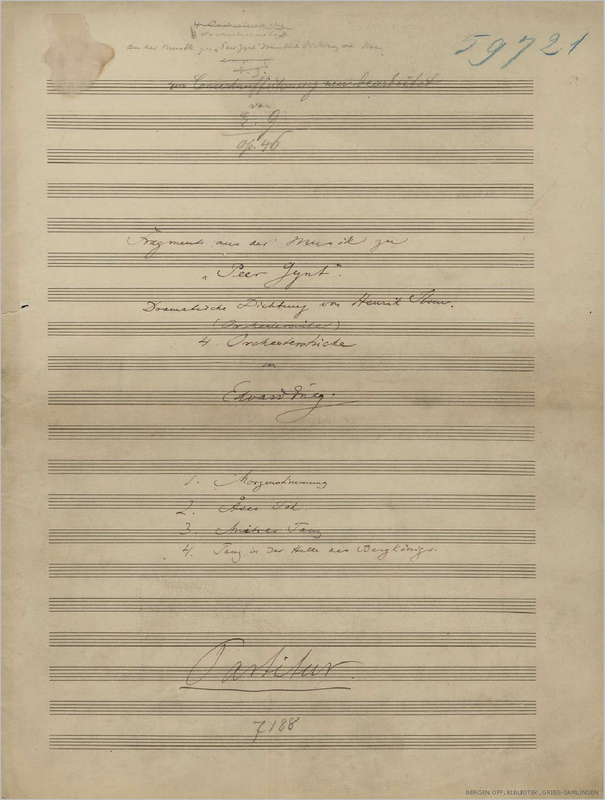 59721
aus der Musik zu „Peer Gynt" Dramatische Dichtung von Ibsen
zur Concertaufführung neu bearbeitet
von
E. G.
Op. 46
Fragmente aus der Musik zu
„Peer Gynt".
Dramatische Dichtung von Henrik Ibsen.
(Orchestersuite)
4 Orchesterstücke
von
Edvard Grieg.
1. Morgenstimmung
2. Åses Tod
3. Anitras Tanz
4. Tanz in der Halle des Bergkönigs.
Partitur.
7188
BERGEN OFF. BIBLIOTEK, GRIEG-SAMLINGEN